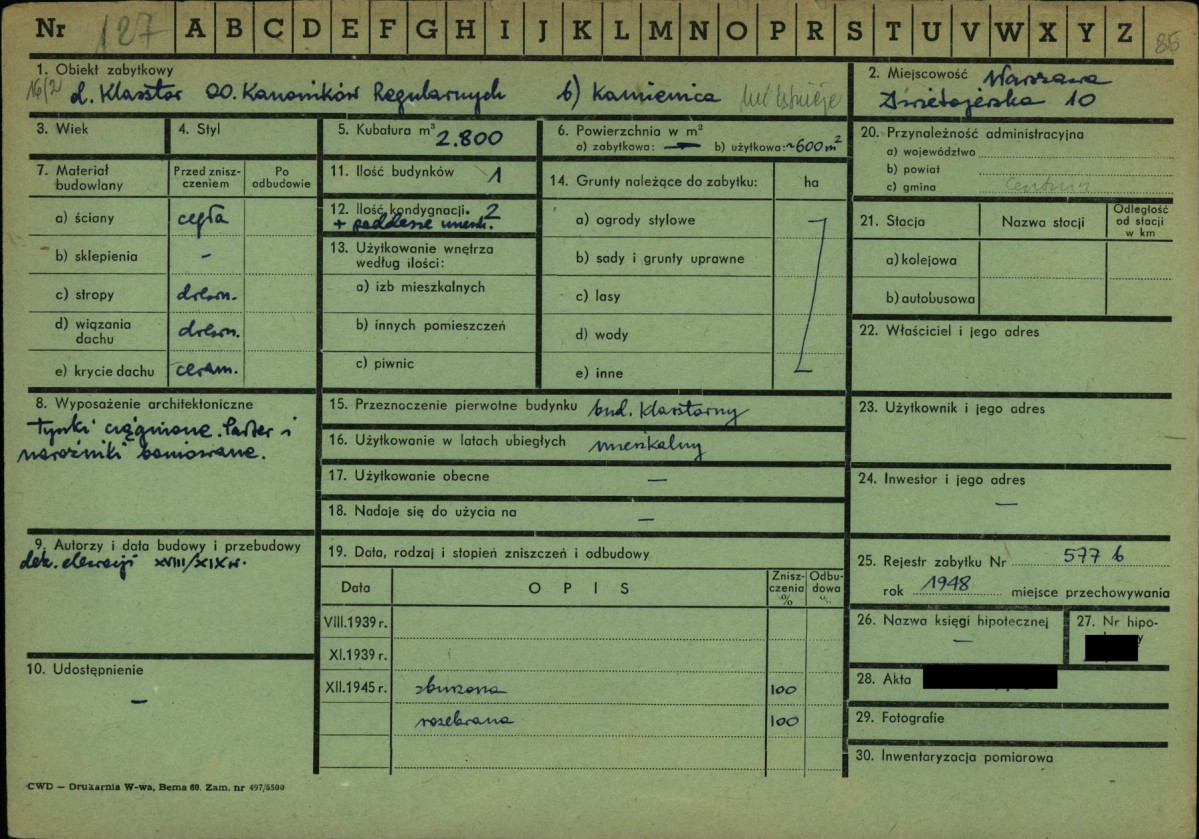 Nr 127 A B C D E F G H I J K L M N O P R S T U V W X Y Z 86
1. Obiekt zabytkowy
16/2 d. Klasztor OO. Kanoników Regularnych b) Kamienica nie istnieje
2. Miejscowość Warszawa
Świętojerska 10
3. Wiek
4. Styl
5. Kubatura m³ 2.800
6. Powierzchnia w m²
a) zabytkowa: — b) użytkowa: ~600 m²
7. Materiał budowlany
Przed zniszczeniem
Po odbudowie
a) ściany cegła
b) sklepienia -
c) stropy drewn.
d) wiązania dachu drewn.
e) krycie dachu ceram.
8. Wyposażenie architektoniczne
Tynki ciągnione. Parter i
narożniki boniowane.
9. Autorzy i data budowy i przebudowy
dek. elewacji XVIII/XIX w.
10. Udostępnienie
—
11. Ilość budynków 1
12. Ilość kondygnacji. 2
+ poddasze mieszk.
13. Użytkowanie wnętrza
według ilości:
a) izb mieszkalnych
b) innych pomieszczeń
c) piwnic
14. Grunty należące do zabytku: ha
a) ogrody stylowe
b) sady i grunty uprawne
c) lasy
d) wody
e) inne
15. Przeznaczenie pierwotne budynku bud. klasztorny
16. Użytkowanie w latach ubiegłych mieszkalny
17. Użytkowanie obecne —
18. Nadaje się do użycia na —
19. Data, rodzaj i stopień zniszczeń i odbudowy
Data OPIS Zniszczenia % Odbudowa %
VIII.1939 r.
XI.1939 r.
XII.1945 r. zburzona 100
rozebrana 100
20. Przynależność administracyjna
a) województwo
b) powiat
c) gmina Centrum
21. Stacja Nazwa stacji Odległość od stacji w km
a) kolejowa
b) autobusowa
22. Właściciel i jego adres
23. Użytkownik i jego adres
24. Inwestor i jego adres
—
25. Rejestr zabytku Nr 577 b
rok 1948 miejsce przechowywania
26. Nazwa księgi hipotecznej
—
27. Nr hipo-
28. Akta
29. Fotografie
30. Inwentaryzacja pomiarowa
CWD — Drukarnia W-wa, Bema 60. Zam. nr 497/6500